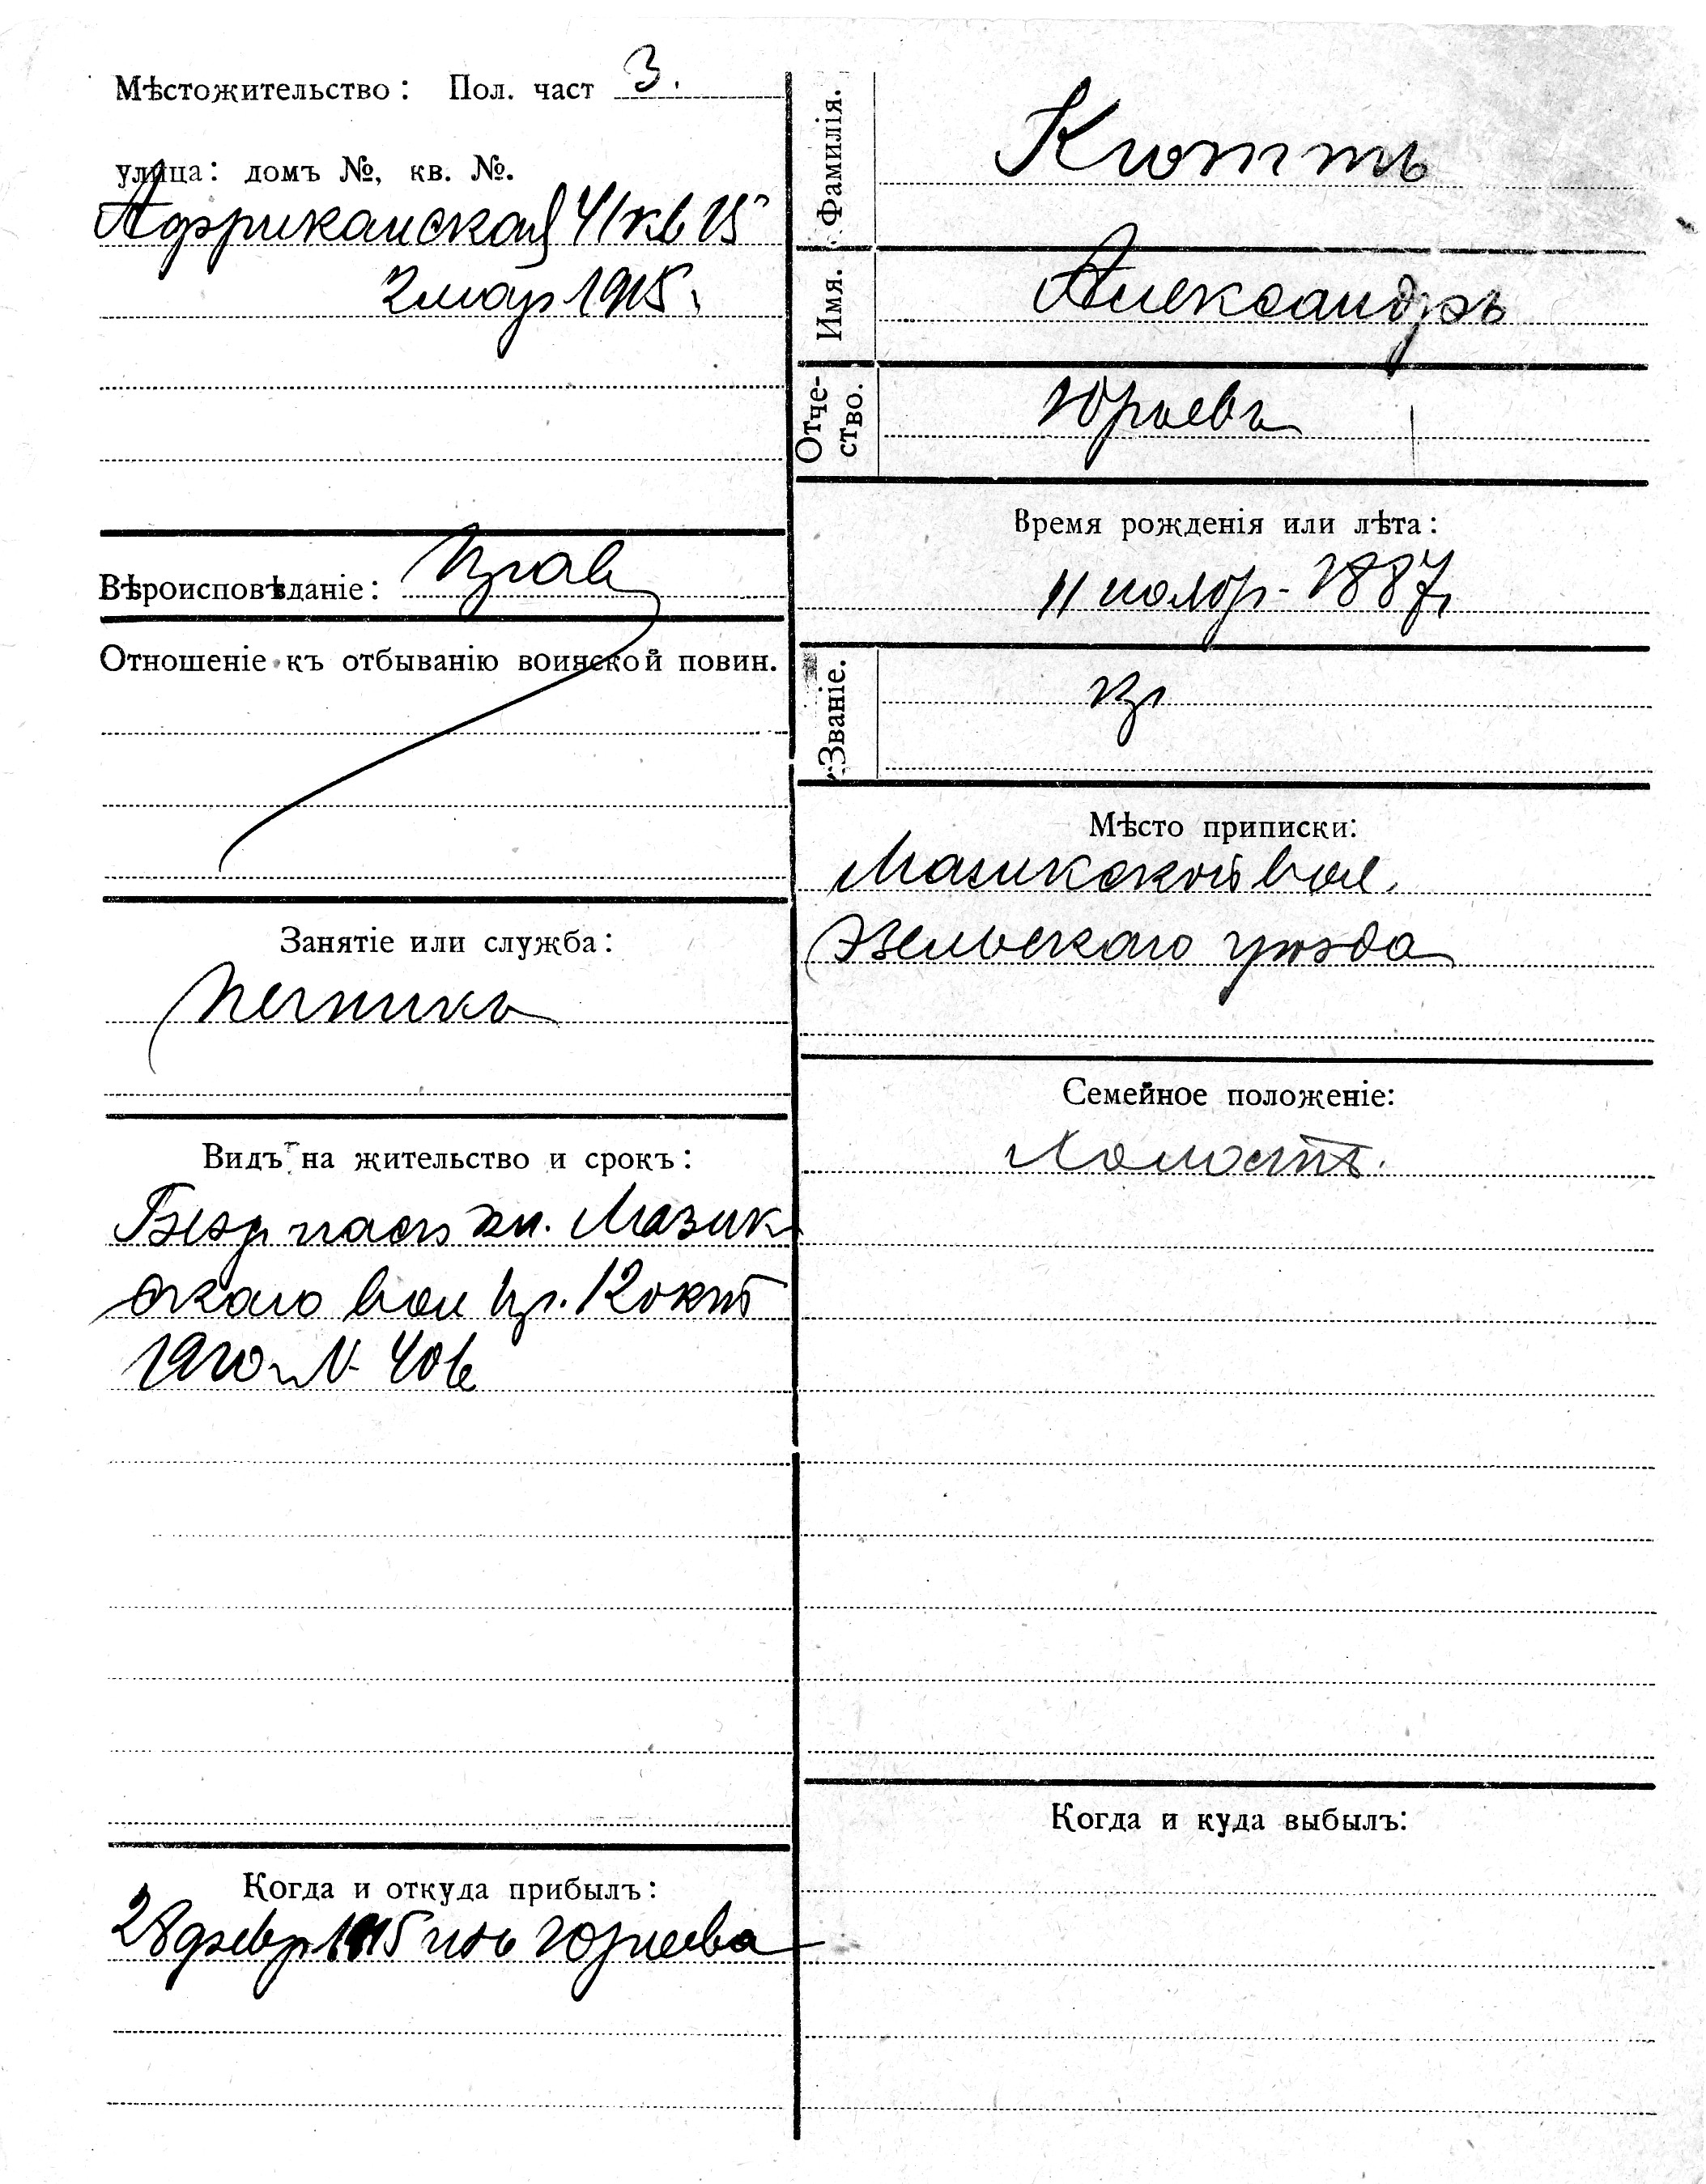 Мѣстожительство: Пол. част 3.
улица: домъ №, кв. №.
Африканская 41 кв 15
2 мар 1915.
Вѣроисповѣданіе: Прав
Отношеніе къ отбыванію воинской повин.
Занятіе или служба:
Печникъ
Видъ на жительство и срокъ:
Безср пасп кн. Мазик
скаго вол пр. 12 окт
1910 г N
Когда и откуда прибылъ:
28 февр 1915 изъ Юрьева
Фамилія.
Кюттъ
Имя.
Александръ
Отче-
ство.
Юрьевъ
Время рожденія или лѣта:
11 ноябр. 1887 г
Званіе.
кр
Мѣсто приписки:
Мазикской вол.
Эзельскаго уѣзда
Семейное положеніе:
Холостъ.
Когда и куда выбылъ: